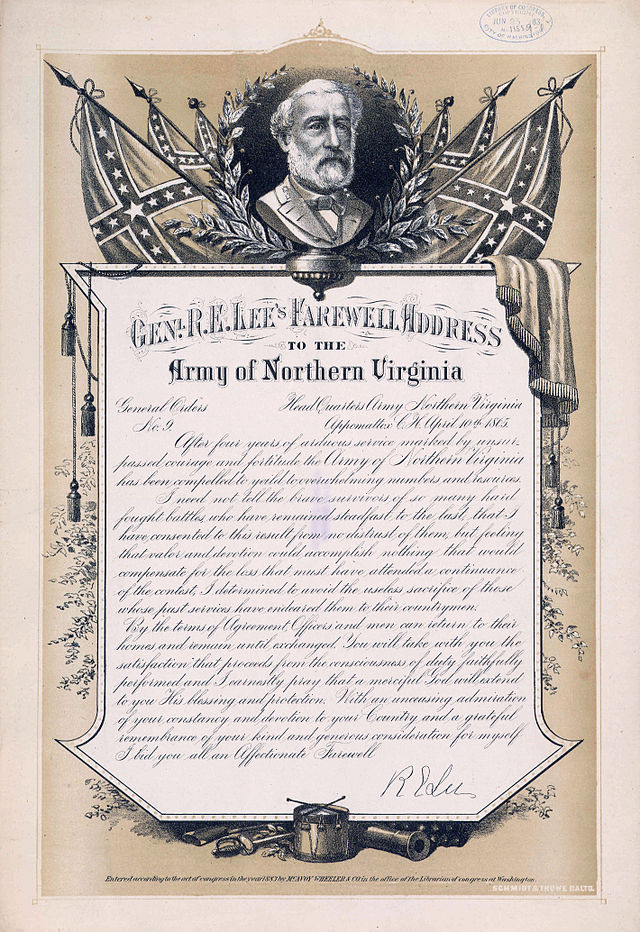 LIBRARY OF CONGRESS
COPYRIGHT
JUN 25 1883
CITY OF WASHINGTON
GENL. R. E. LEE'S FAREWELL ADDRESS
TO THE
Army of Northern Virginia
General Orders Head Quarters Army Northern Virginia
No. 9. Appomattox C.H. April 10th 1865
After four years of arduous service marked by unsur-
passed courage and fortitude the Army of Northern Virginia
has been compelled to yeild to overwhelming numbers and resources.
I need not tell the brave survivors of so many hard
fought battles, who have remained steadfast to the last, that I
have consented to this result from no distrust of them; but feeling
that valor and devotion could accomplish nothing that would
compensate for the loss that must have attended a continuance
of the contest, I determined to avoid the useless sacrifice of those
whose past services have endeared them to their countrymen.
By the terms of Agreement, Officers and men can return to their
homes and remain until exchanged. You will take with you the
satisfaction that proceeds from the consciousness of duty faithfully
performed and I earnestly pray that a merciful God will extend
to you His blessing and protection. With an unceasing admiration
of your constancy and devotion to your Country and a grateful
remembrance of your kind and generous consideration for myself
I bid you all an Affectionate Farewell
R E Lee
Entered according to the act of congress in the year 1883 by McAVOY WHEELER & CO in the office of the Librarian of congress at Washington.
SCHMIDT & TROWE BALTO.